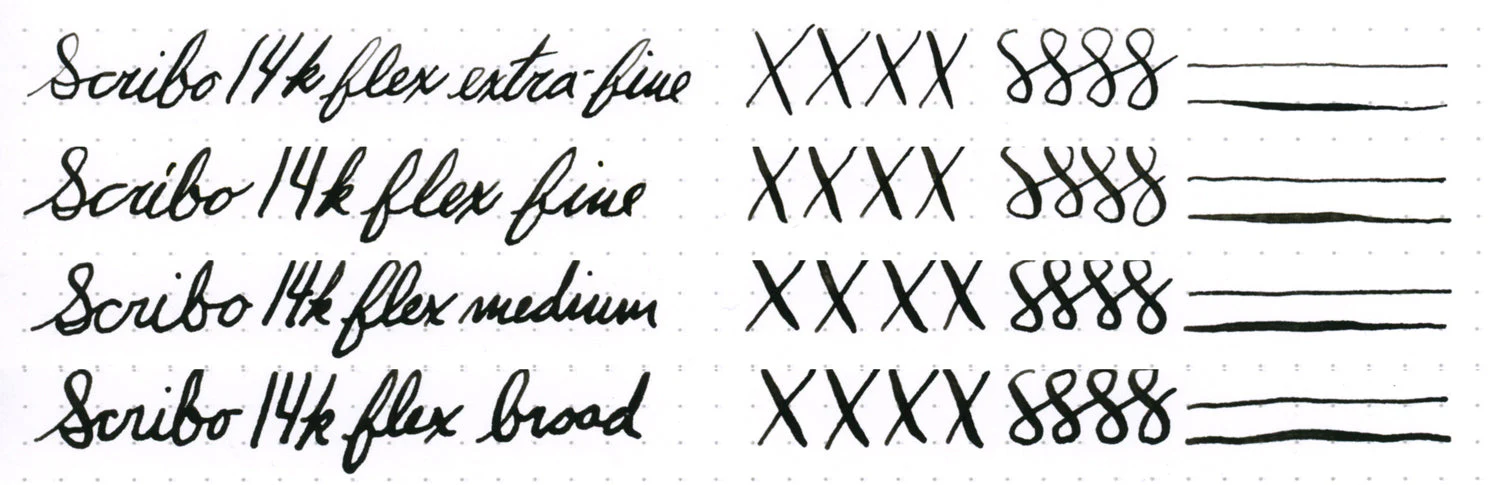 Scribo 14k flex extra-fine XXXX 8888
Scribo 14k flex fine XXXX 8888
Scribo 14k flex medium XXXX 8888
Scribo 14k flex broad XXXX 8888